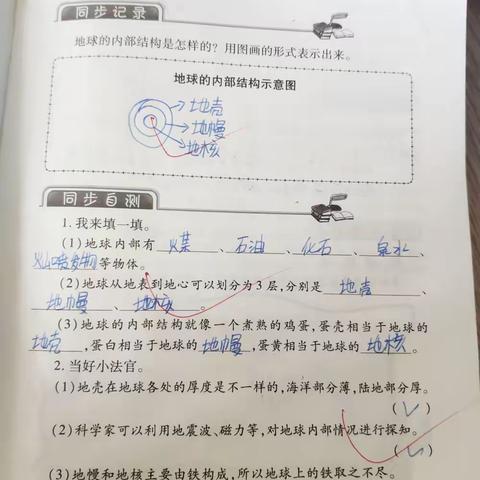 同步记录
地球的内部结构是怎样的？用图画的形式表示出来。
地球的内部结构示意图
地壳
地幔
地核
同步自测
1. 我来填一填。
(1)地球内部有 煤 、 石油 、 化石 、 泉水 、
火山喷发物 等物体。
(2)地球从地表到地心可以划分为3层,分别是 地壳 、
地幔 、 地核 。
(3)地球的内部结构就像一个煮熟的鸡蛋,蛋壳相当于地球的
地壳 ,蛋白相当于地球的 地幔 ,蛋黄相当于地球的 地核 。
2. 当好小法官。
(1)地壳在地球各处的厚度是不一样的,海洋部分薄,陆地部分厚。
(✓)
(2)科学家可以利用地震波、磁力等,对地球内部情况进行探知。
(✓)
(3)地幔和地核主要由铁构成,所以地球上的铁取之不尽。